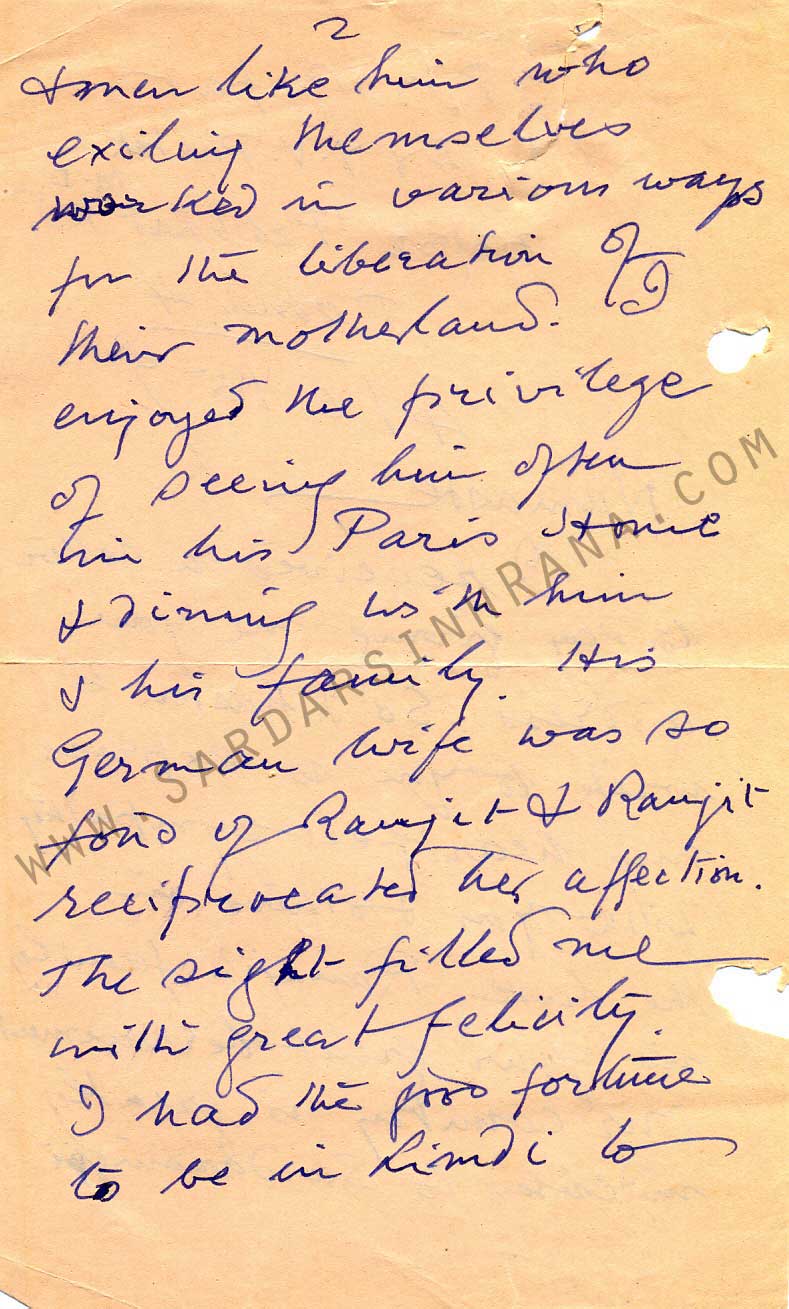 2
& men like him who
exiling themselves
worked in various ways
for the liberation of
their motherland. I
enjoyed the privilege
of seeing him often
in his Paris Home
& dining with him
& his family. His
German wife was so
fond of Ranjit & Ranjit
reciprocated her affection.
The sight filled me
with great felicity.
I had the good fortune
to be in Limdi to
WWW.SARDARSINHRANA.COM